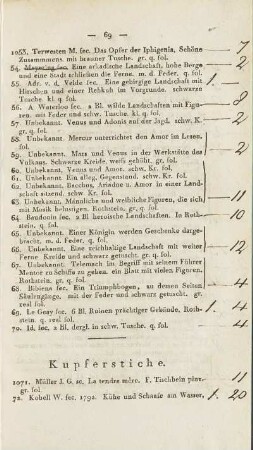 — 69 —
1053. Terwesten M. fec. Das Opfer der Iphigenia, Schöne
Zusammens. mit brauner Tusche. gr. fol. 7
54. Meyering fec. Eine arkadische Landschaft, hohe Berge
und eine Stadt schließen die Ferne. m. d. Feder. q. fol. 2
55. Adr. v. d. Velde fec. Eine gebirgige Landschaft mit
Hirschen und einer Rehkuh im Vorgrunde. schwarze
Tusche. kl. q. fol.
56. A Waterloo fec. 2 Bl. wilde Landschaften mit Figu-
ren. mit Feder und schw. Tusche. kl. q. fol. 8
57. Unbekannt. Venus und Adonis auf der Jagd. schw. K.
gr. q. fol. 2
58. Unbekannt. Mercur unterrichtet den Amor im Lesen.
fol.
59. Unbekannt. Mars und Venus in der Werkstätte des
Vulkans. Schwarze Kreide. weiß gehöht. gr. fol.
60. Unbekannt. Venus und Amor. schw. Kr. fol.
61. Unbekannt. Ein alleg. Gegenstand. schw. Kr. fol.
62. Unbekannt. Bacchus, Ariadne u. Amor in einer Land-
schaft sitzend. schw. Kr. fol.
63. Unbekannt. Männliche und weibliche Figuren, die sich
mit Musik belustigen. Rothstein. gr. q. fol.
64. Bendonis fec. 2 Bl. heroische Landschaften. In Roth-
stein. q. fol. 10
65. Unbekannt. Einer Königin werden Geschenke darge-
bracht. m. d. Feder. q. fol. 2
66. Unbekannt. Eine reichhaltige Landschaft mit weiter
Ferne Kreide und schwarz getuscht. gr. q. fol. 12
67. Unbekannt. Telemach im Begriff mit seinem Führer
Mentor zu Schiffe zu gehen. ein Blatt mit vielen Figuren.
Rothstein. gr. q. fol.
68. Bibiena fec. Ein Triumphbogen, zu dessen Seiten
Säulengänge. mit der Feder und schwarz getuscht. gr.
real fol. 4
69. Le Geay fec. 6 Bl. Ruinen prächtiger Gebäude, Roth-
stein. q. real fol.
70. Id. fec. 2 Bl. dergl. in schw. Tusche. q. fol. 4
Kupferstiche.
1071. Müller J. G. sc. La tendre mère. F. Tischbein pinx.
gr. fol 11
72. Kobell W. fec. 1792. Kühe und Schaafe am Wasser, 1. 20